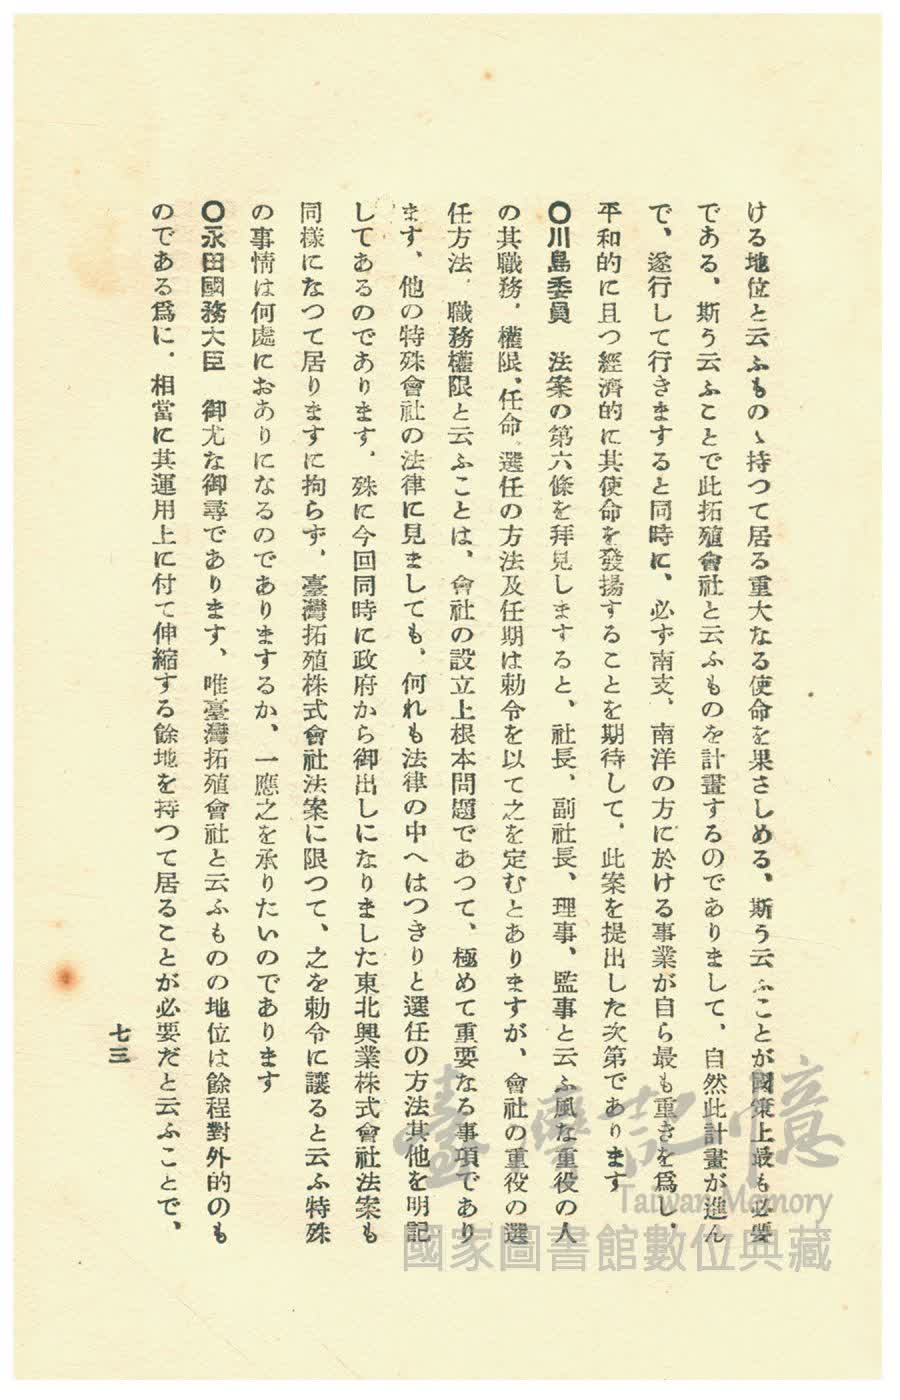 ける地位と云ふものゝ持つて居る重大なる使命を果さしめる、斯う云ふことが國策上最も必要
である、斯う云ふことで此拓殖會社と云ふものを計畫するのでありまして、自然此計畫が進ん
で、遂行して行きますると同時に、必ず南支、南洋の方に於ける事業が自ら最も重きを爲し、
平和的に且つ經濟的に其使命を發揚することを期待して、此案を提出した次第であります
〇川島委員　法案の第六條を拜見しますると、社長、副社長、理事、監事と云ふ風な重役の人
の其職務、權限、任命、選任の方法及任期は勅令を以て之を定むとありますが、會社の重役の選
任方法、職務權限と云ふことは、會社の設立上根本問題であつて、極めて重要なる事項であり
ます、他の特殊會社の法律に見ましても、何れも法律の中へはつきりと選任の方法其他を明記
してあるのであります、殊に今回同時に政府から御出しになりました東北興業株式會社法案も
同樣になつて居りますに拘らず、臺灣拓殖株式會社法案に限つて、之を勅令に讓ると云ふ特殊
の事情は何處におありになるのでありまするか、一應之を承りたいのであります
〇永田國務大臣　御尤な御尋であります、唯臺灣拓殖會社と云ふものの地位は餘程對外的のも
のである爲に、相當に其運用上に付て伸縮する餘地を持つて居ることが必要だと云ふことで、
七三
臺灣記憶
Taiwan Memory
國家圖書館數位典藏